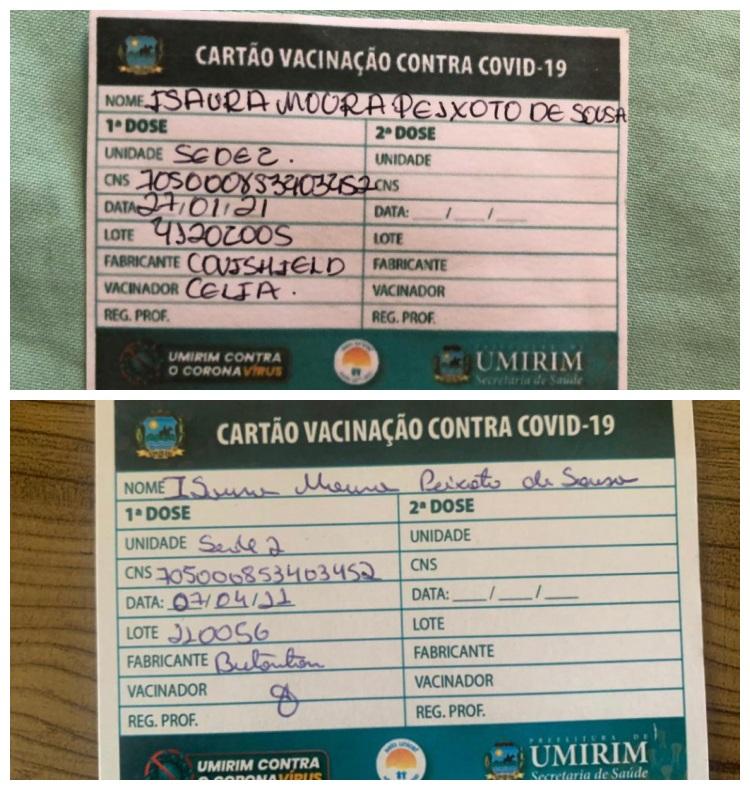 CARTÃO VACINAÇÃO CONTRA COVID-19
NOME ISAURA MOURA PEIXOTO DE SOUSA
1ª DOSE 2ª DOSE
UNIDADE SEDE 2. UNIDADE
CNS 705000853403452 CNS
DATA 27/01/21 DATA: / /
LOTE 4120Z005 LOTE
FABRICANTE COVISHIELD FABRICANTE
VACINADOR CELIA. VACINADOR
REG. PROF. REG. PROF.
UMIRIM CONTRA
O CORONAVÍRUS
UMIRIM
Secretaria de Saúde
CARTÃO VACINAÇÃO CONTRA COVID-19
NOME Peixoto de Sousa
1ª DOSE 2ª DOSE
UNIDADE Sede 2 UNIDADE
CNS 705000853403452 CNS
DATA: 07/04/21 DATA: / /
LOTE 210056 LOTE
FABRICANTE Butantan FABRICANTE
VACINADOR VACINADOR
REG. PROF. REG. PROF.
UMIRIM CONTRA
O CORONAVÍRUS
PREFEITURA DE
UMIRIM
Secretaria de Saúde